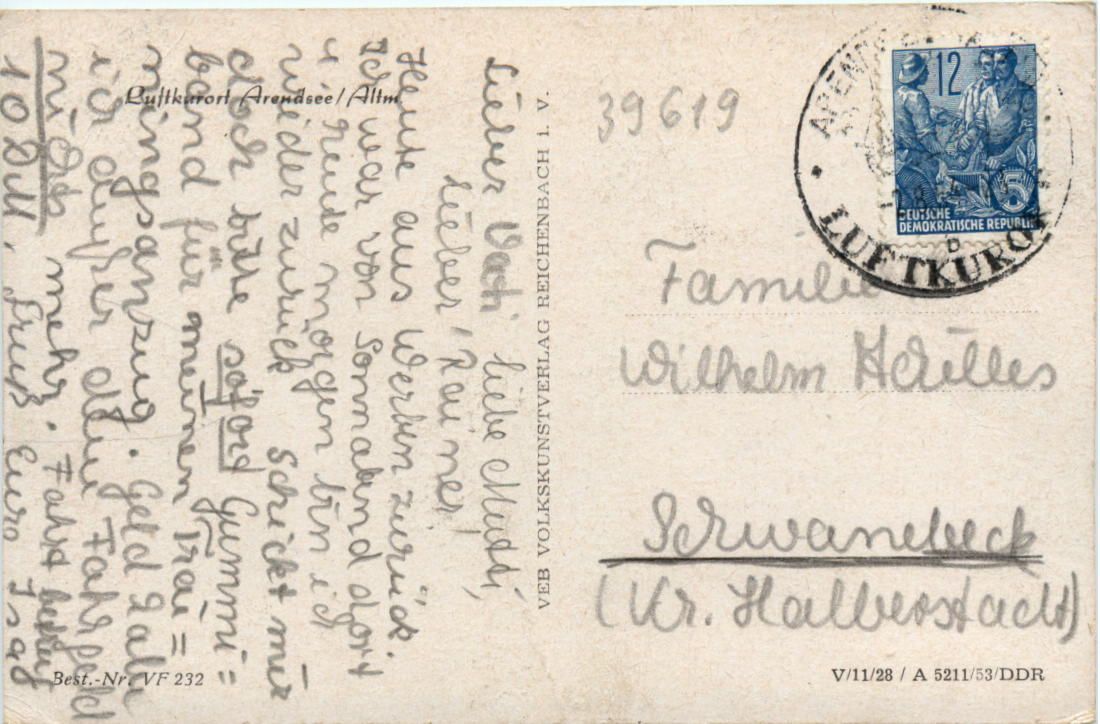 Luftkurort Arendsee/Altm
Lieber Vati, liebe Mutti,
lieber Rainer!
Heute aus Werben zurück.
Ich war von Sonnabend dort
u. heute morgen bin ich
wieder zurück. Schickt mir
doch bitte sofort Gummi=
band für meinen Trai=
ningsanzug. Geld habe
ich außer dem Fahrgeld
nicht mehr.
10 DM, Gruß Eure
VEB VOLKSKUNSTVERLAG REICHENBACH i. V.
Best.-Nr. VF 232
39619
12
5
DEUTSCHE
DEMOKRATISCHE REPUBLIK
LUFTKURORT
b
Familie
Wilhelm
Schwanebeck
(Kr. Halberstadt)
V/11/28 / A 5211/53/DDR